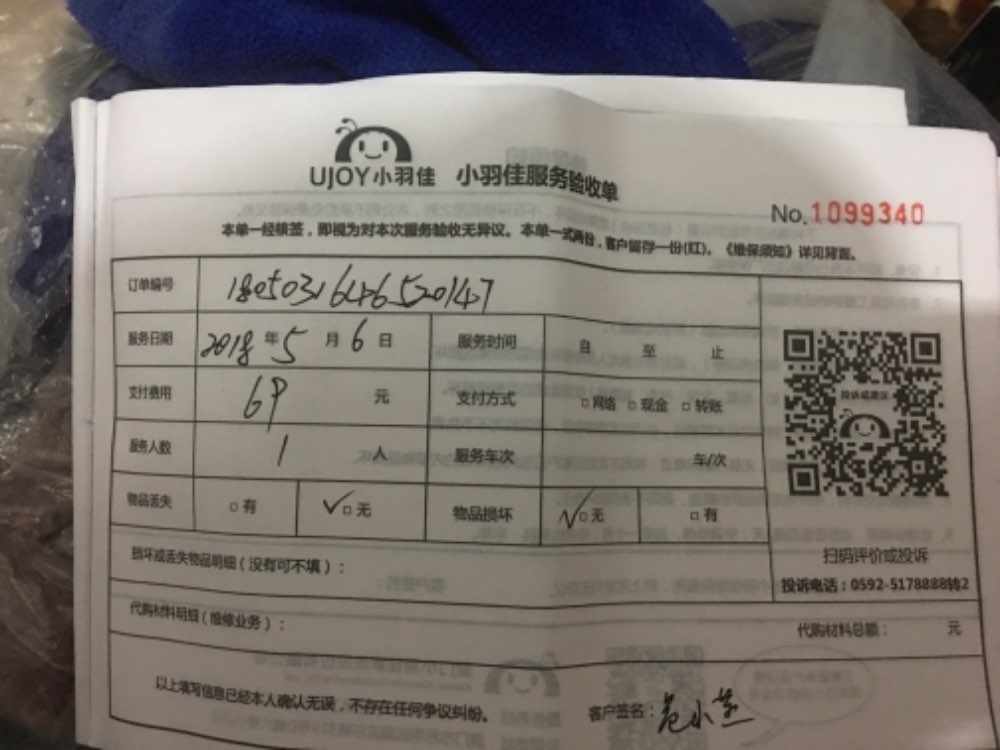 UJOY小羽佳 小羽佳服务验收单
No.1099340
本单一经核签，即视为对本次服务验收无异议。本单一式两份，客户留存一份(红)。《维保须知》详见背面。
订单编号
服务日期 2018年5月6日 服务时间 自 至 止
支付费用 69 元 支付方式 □网络 □现金 □转账
服务人数 1 人 服务车次 车/次
物品丢失 □有 ✓□无 物品损坏 ✓□无 □有
投诉或建议
扫码评价或投诉
投诉电话：0592-5178888转2
损坏或丢失物品明细（没有可不填）：
代购材料明细（维修业务）： 代购材料总额： 元
以上填写信息已经本人确认无误，不存在任何争议纠纷。 客户签名：